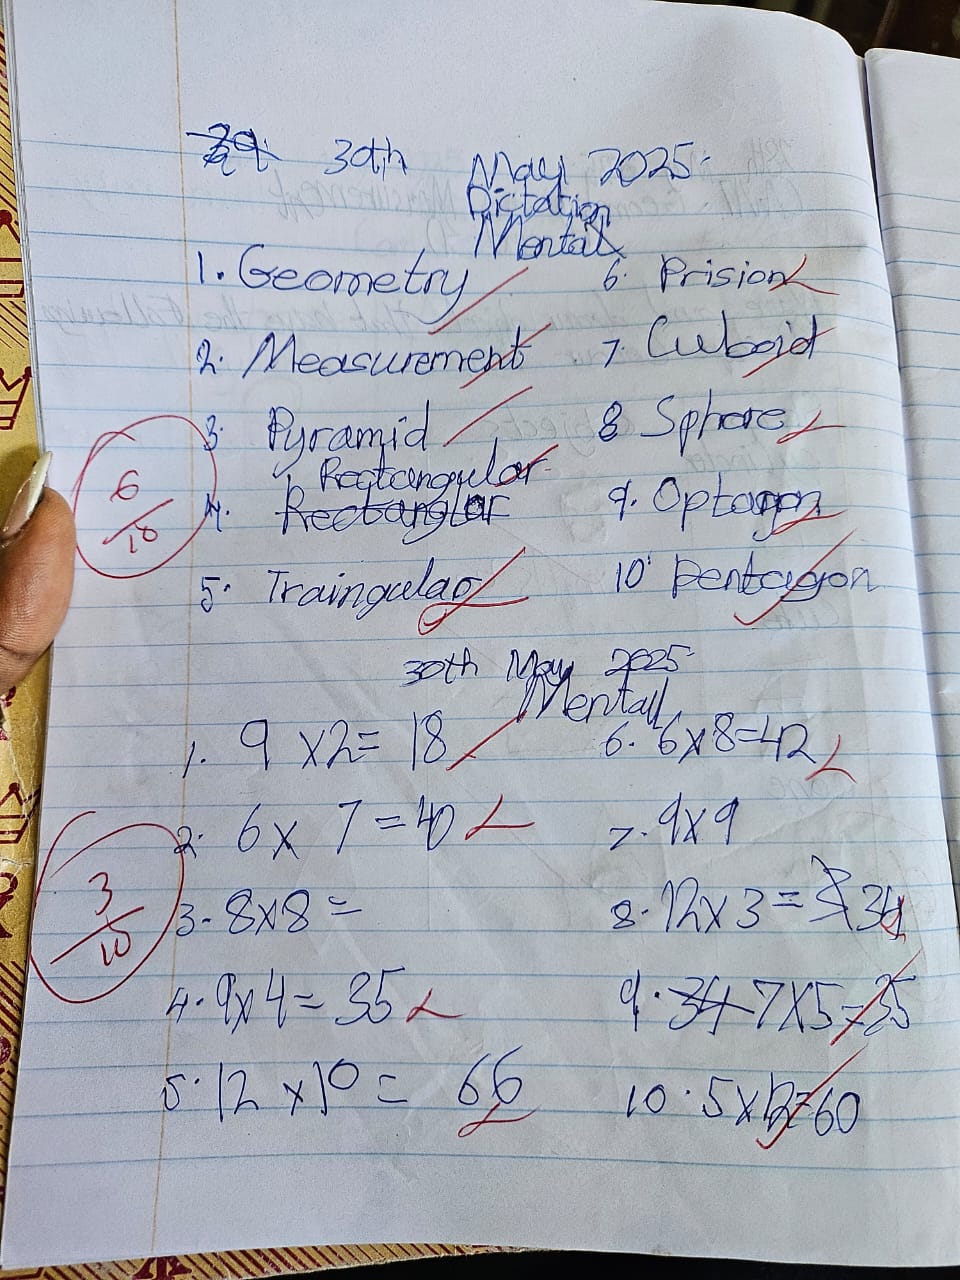 30th May 2025
Dictation
Mental
1. Geometry
2. Measurement
3. Pyramid
Rectangular
4. Rectanglar
5. Traingular
6. Prision
7. Cuboid
8 Sphore
9. Optagon
10. Pentagon
6/10
30th May 2025
Mental
1. 9 x 2 = 18
2. 6 x 7 = 40
3. 8x8 =
4. 9x4 = 35
5. 12 x 10 = 66
6. 6x8=42
7. 9x9
8. 12x3 = 34
9. 34 7x5=35
10. 5x12=60
3/10